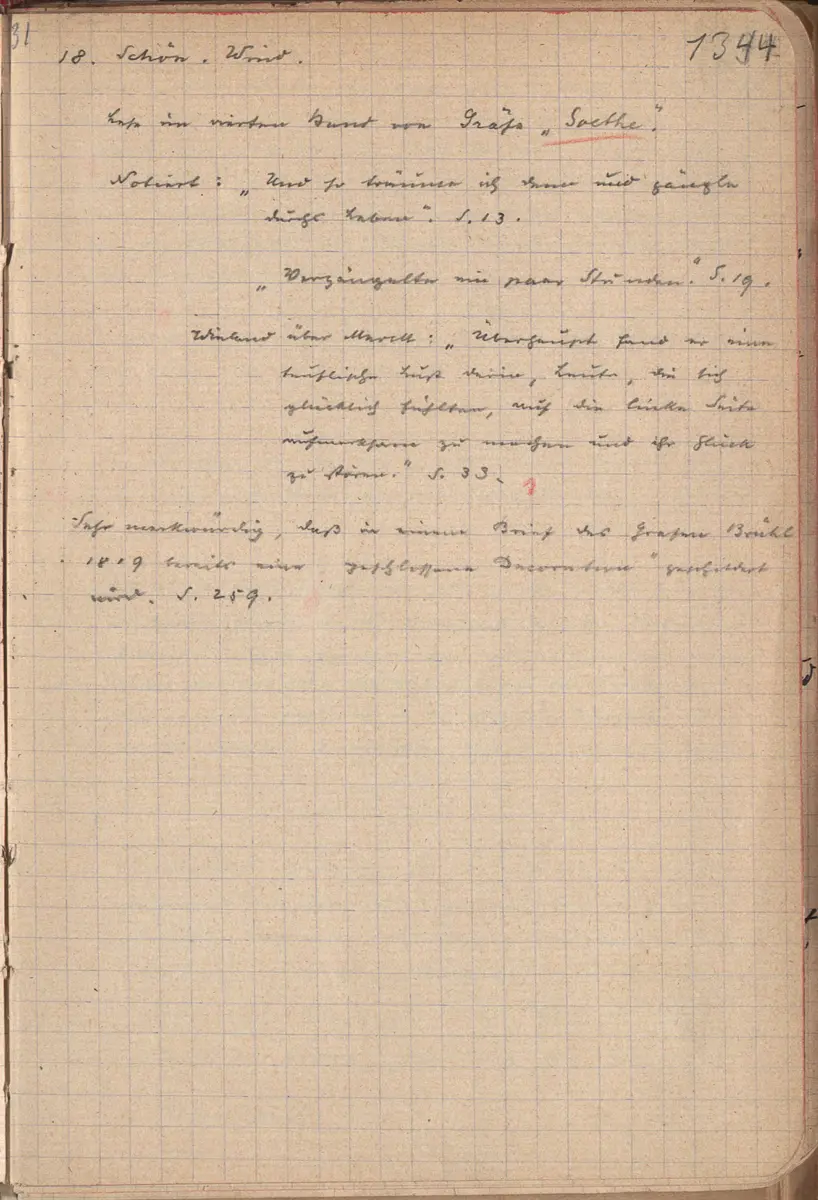 31
1344
18. Schön. Wind.
Lese im vierten Band von Gräfs „Goethe“.
Notiert: „Und so träume ich denn und gängle
durchs Leben“. S. 13.
„Vergängelte ein paar Stunden.“ S. 19.
Wieland über Merck: „Überhaupt fand er eine
teuflische Lust darin, Leute, die sich
glücklich fühlten, auf die linke Seite
aufmerksam zu machen und ihr Glück
zu stören.“ S. 33.
Sehr merkwürdig, daß in einem Brief des Grafen Brühl
1819 bereits eine geschlossene Decoration“ geschildert
wird. S. 259.